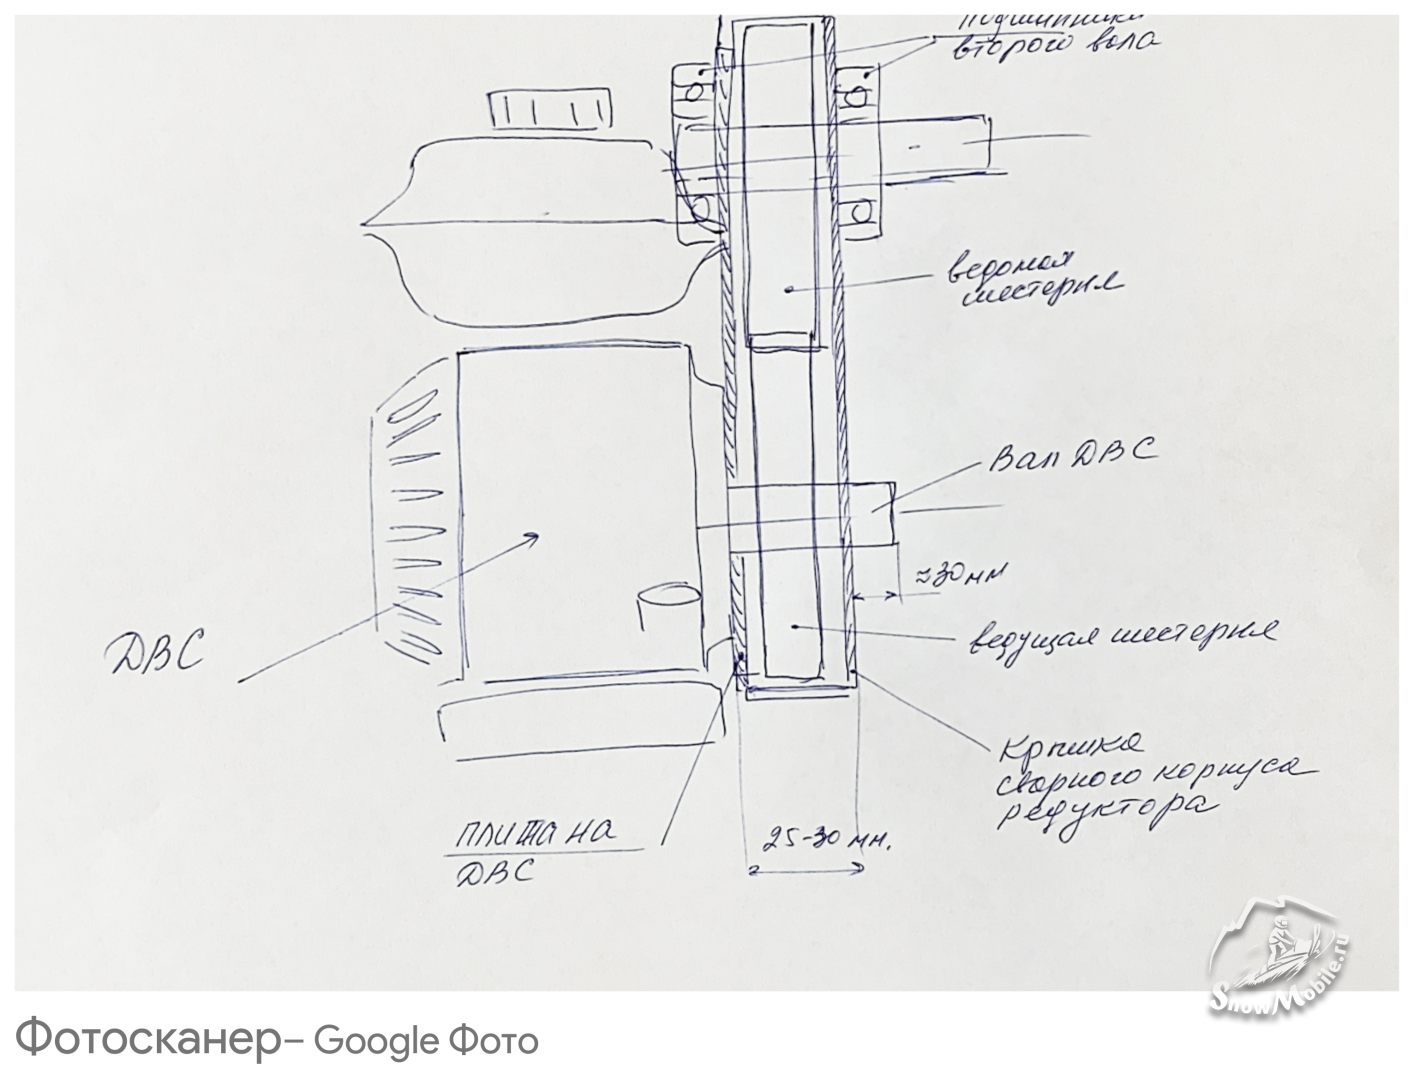 подшипники
второго вала
ведомая
шестерня
Вал ДВС
≈30мм
ДВС
ведущая шестерня
Крышка
сварного корпуса
редуктора
плита на
ДВС
25-30 мм.
SnowMobile.ru
Фотосканер– Google Фото